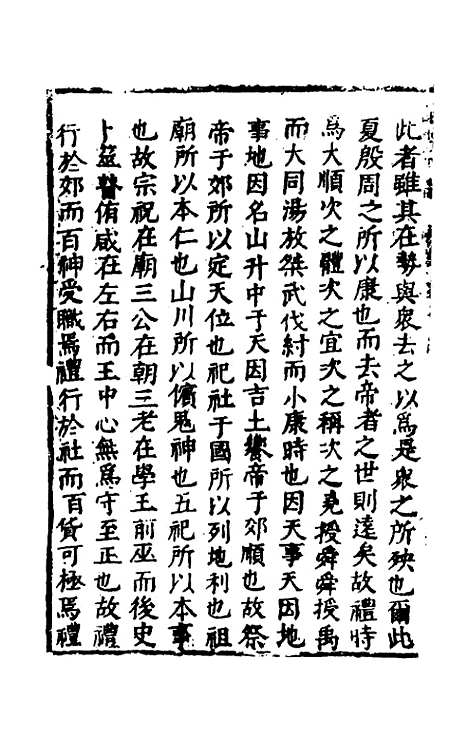 此者雖其在勢與衆去之以爲是衆之所殃也爾此
夏殷周之所以康也而去帝者之世則遠矣故禮時
爲大順次之體次之宜次之稱次之堯授舜舜授禹
而大同湯放桀武伐紂而小康時也因天事天因地
事地因名山升中于天因吉土饗帝于郊順也故祭
帝于郊所以定天位也祀社于國所以列地利也祖
廟所以本仁也山川所以儐鬼神也五祀所以本事
也故宗祝在廟三公在朝三老在學王前巫而後史
卜筮瞽侑咸在左右而王中心無爲守至正也故禮
行於郊而百神受職焉禮行於社而百貨可極焉禮